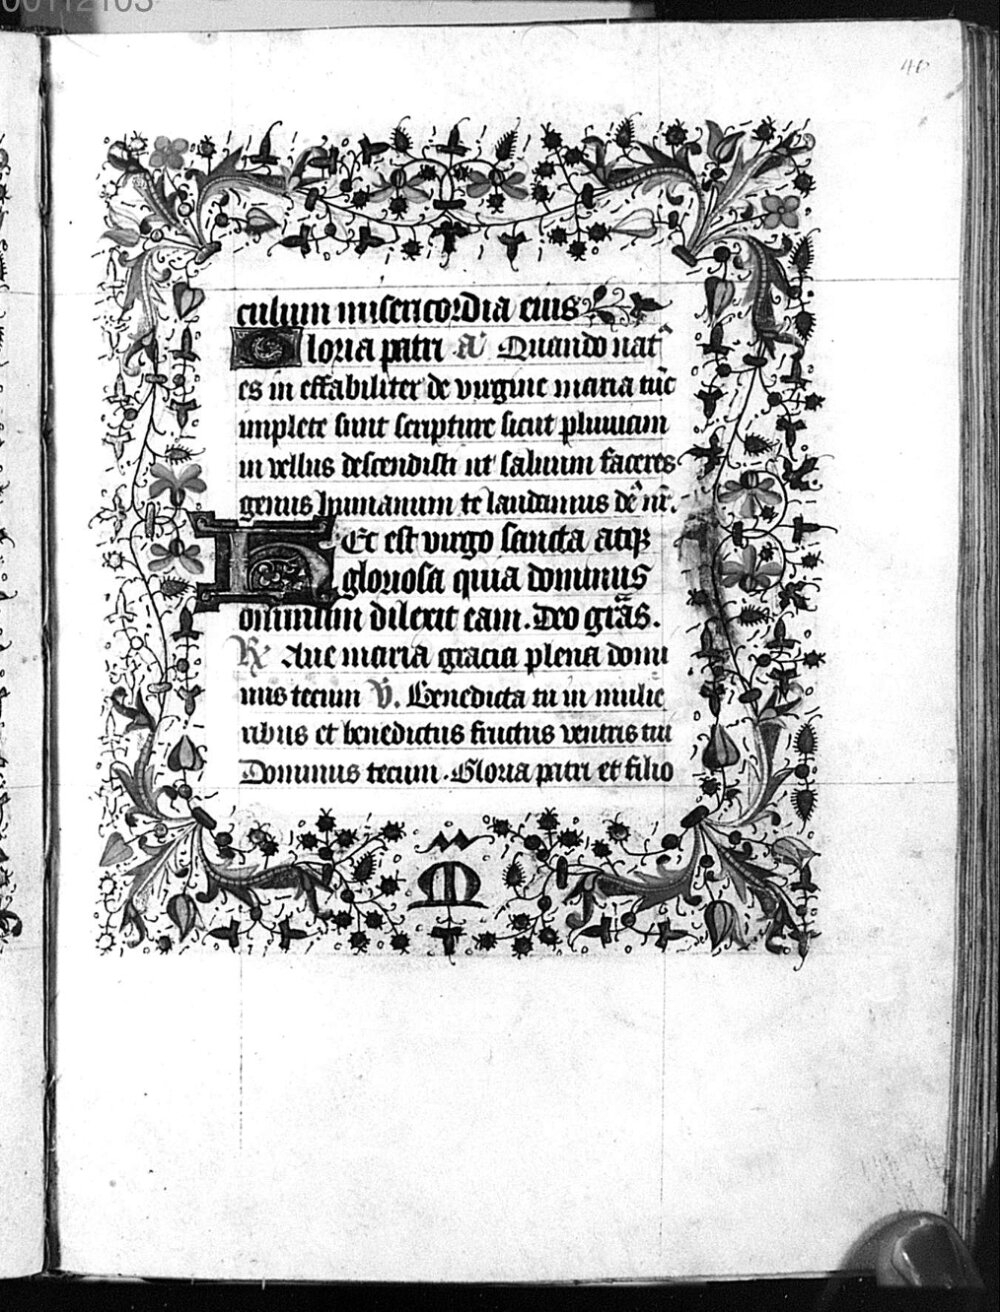 00112103
46
culum misericordia eius
Gloria patri a Quando nat̃
es in effabiliter de virgine maria tūc
implete sunt scripture sicut pluuiam
in vellus descendisti ut saluum faceres
genus humanum te laudamus dē nr̄.
HEc est virgo sancta atqꝫ
gloriosa quia dominus
omnium dilexit eam. Deo grās.
℟ Aue maria gracia plena domi
nus tecum ℣. Benedicta tu in mulie
ribus et benedictus fructus ventris tui
Dominus tecum. Gloria patri et filio
M